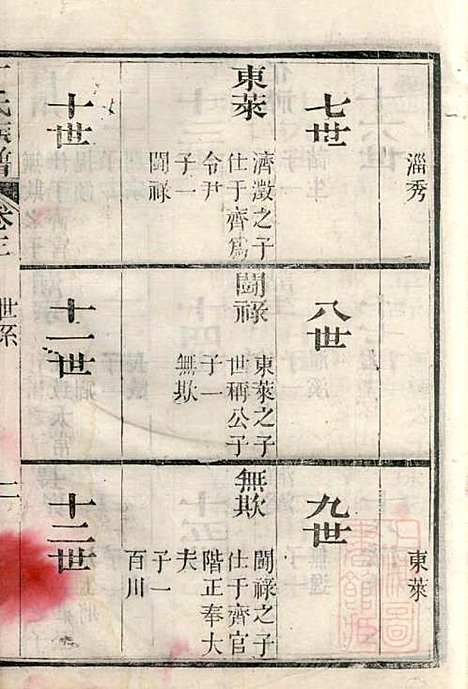 淄秀
七世
東萊
濟澂之子
仕于齊爲
令尹
子一
鬪祿
十世
八世
鬪祿
東萊之子
世稱公子
子一
無欺
十一世
東萊
九世
無欺
鬪祿之子
仕于齊官
階正奉大
夫
子一
百川
十二世
氏族譜
卷三
世系